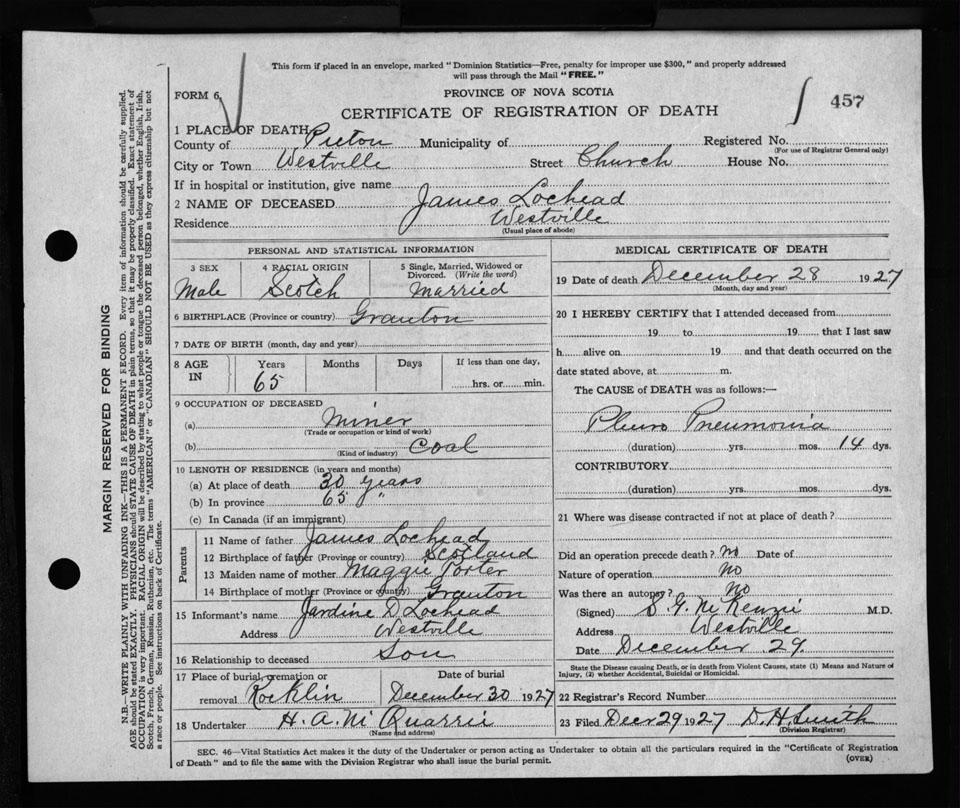 This form if placed in an envelope, marked "Dominion Statistics—Free, penalty for improper use $300," and properly addressed
will pass through the Mail "FREE."
FORM 6,
PROVINCE OF NOVA SCOTIA
CERTIFICATE OF REGISTRATION OF DEATH
457
1 PLACE OF DEATH
County of Pictou Municipality of Registered No.
(For use of Registrar General only)
City or Town Westville Street Church House No.
If in hospital or institution, give name
2 NAME OF DECEASED James Lochead
Residence Westville
(Usual place of abode)
PERSONAL AND STATISTICAL INFORMATION
3 SEX 4 RACIAL ORIGIN 5 Single, Married, Widowed or
Divorced. (Write the word)
Male Scotch Married
6 BIRTHPLACE (Province or country) Granton
7 DATE OF BIRTH (month, day and year)
8 AGE IN Years Months Days If less than one day,
65 hrs. or min.
9 OCCUPATION OF DECEASED
(a) Miner
(Trade or occupation or kind of work)
(b) Coal
(Kind of industry)
10 LENGTH OF RESIDENCE (in years and months)
(a) At place of death 30 years
(b) In province 65 "
(c) In Canada (if an immigrant)
Parents
11 Name of father James Lochead
12 Birthplace of father (Province or country) Scotland
13 Maiden name of mother Maggie Porter
14 Birthplace of mother (Province or country) Granton
15 Informant's name Jardine D Lochead
Address Westville
16 Relationship to deceased Son
17 Place of burial, cremation or Date of burial
removal Rocklin December 30 1927
18 Undertaker H. A. McQuarrie
(Name and address)
MEDICAL CERTIFICATE OF DEATH
19 Date of death December 28 1927
(Month, day and year)
20 I HEREBY CERTIFY that I attended deceased from
19 to 19 that I last saw
h alive on 19 and that death occurred on the
date stated above, at m.
The CAUSE of DEATH was as follows:—
Pleuro Pneumonia
(duration) yrs. mos. 14 dys.
CONTRIBUTORY
(duration) yrs. mos. dys.
21 Where was disease contracted if not at place of death?
Did an operation precede death? No Date of
Nature of operation No
Was there an autopsy? No
(Signed) S. G. McKenzie M.D.
Address Westville
Date December 29.
State the Disease causing Death, or in death from Violent Causes, state (1) Means and Nature of
Injury, (2) whether Accidental, Suicidal or Homicidal.
22 Registrar's Record Number
23 Filed Decr 29 1927 D. H. Smith
(Division Registrar)
SEC. 46—Vital Statistics Act makes it the duty of the Undertaker or person acting as Undertaker to obtain all the particulars required in the "Certificate of Registration
of Death" and to file the same with the Division Registrar who shall issue the burial permit.
(OVER)
MARGIN RESERVED FOR BINDING
N.B.—WRITE PLAINLY WITH UNFADING INK—THIS IS A PERMANENT RECORD. Every item of information should be carefully supplied.
AGE should be stated EXACTLY. PHYSICIANS should STATE CAUSE OF DEATH in plain terms, so that it may be properly classified. Exact statement of
OCCUPATION is very important. RACIAL ORIGIN will be described by stating to what people or tongue the deceased person belonged, whether English, Irish,
Scotch, French, German, Russian, Ruthenian, etc. The terms "AMERICAN" or "CANADIAN" SHOULD NOT BE USED as they express citizenship but not
a race or people. See instructions on back of Certificate.